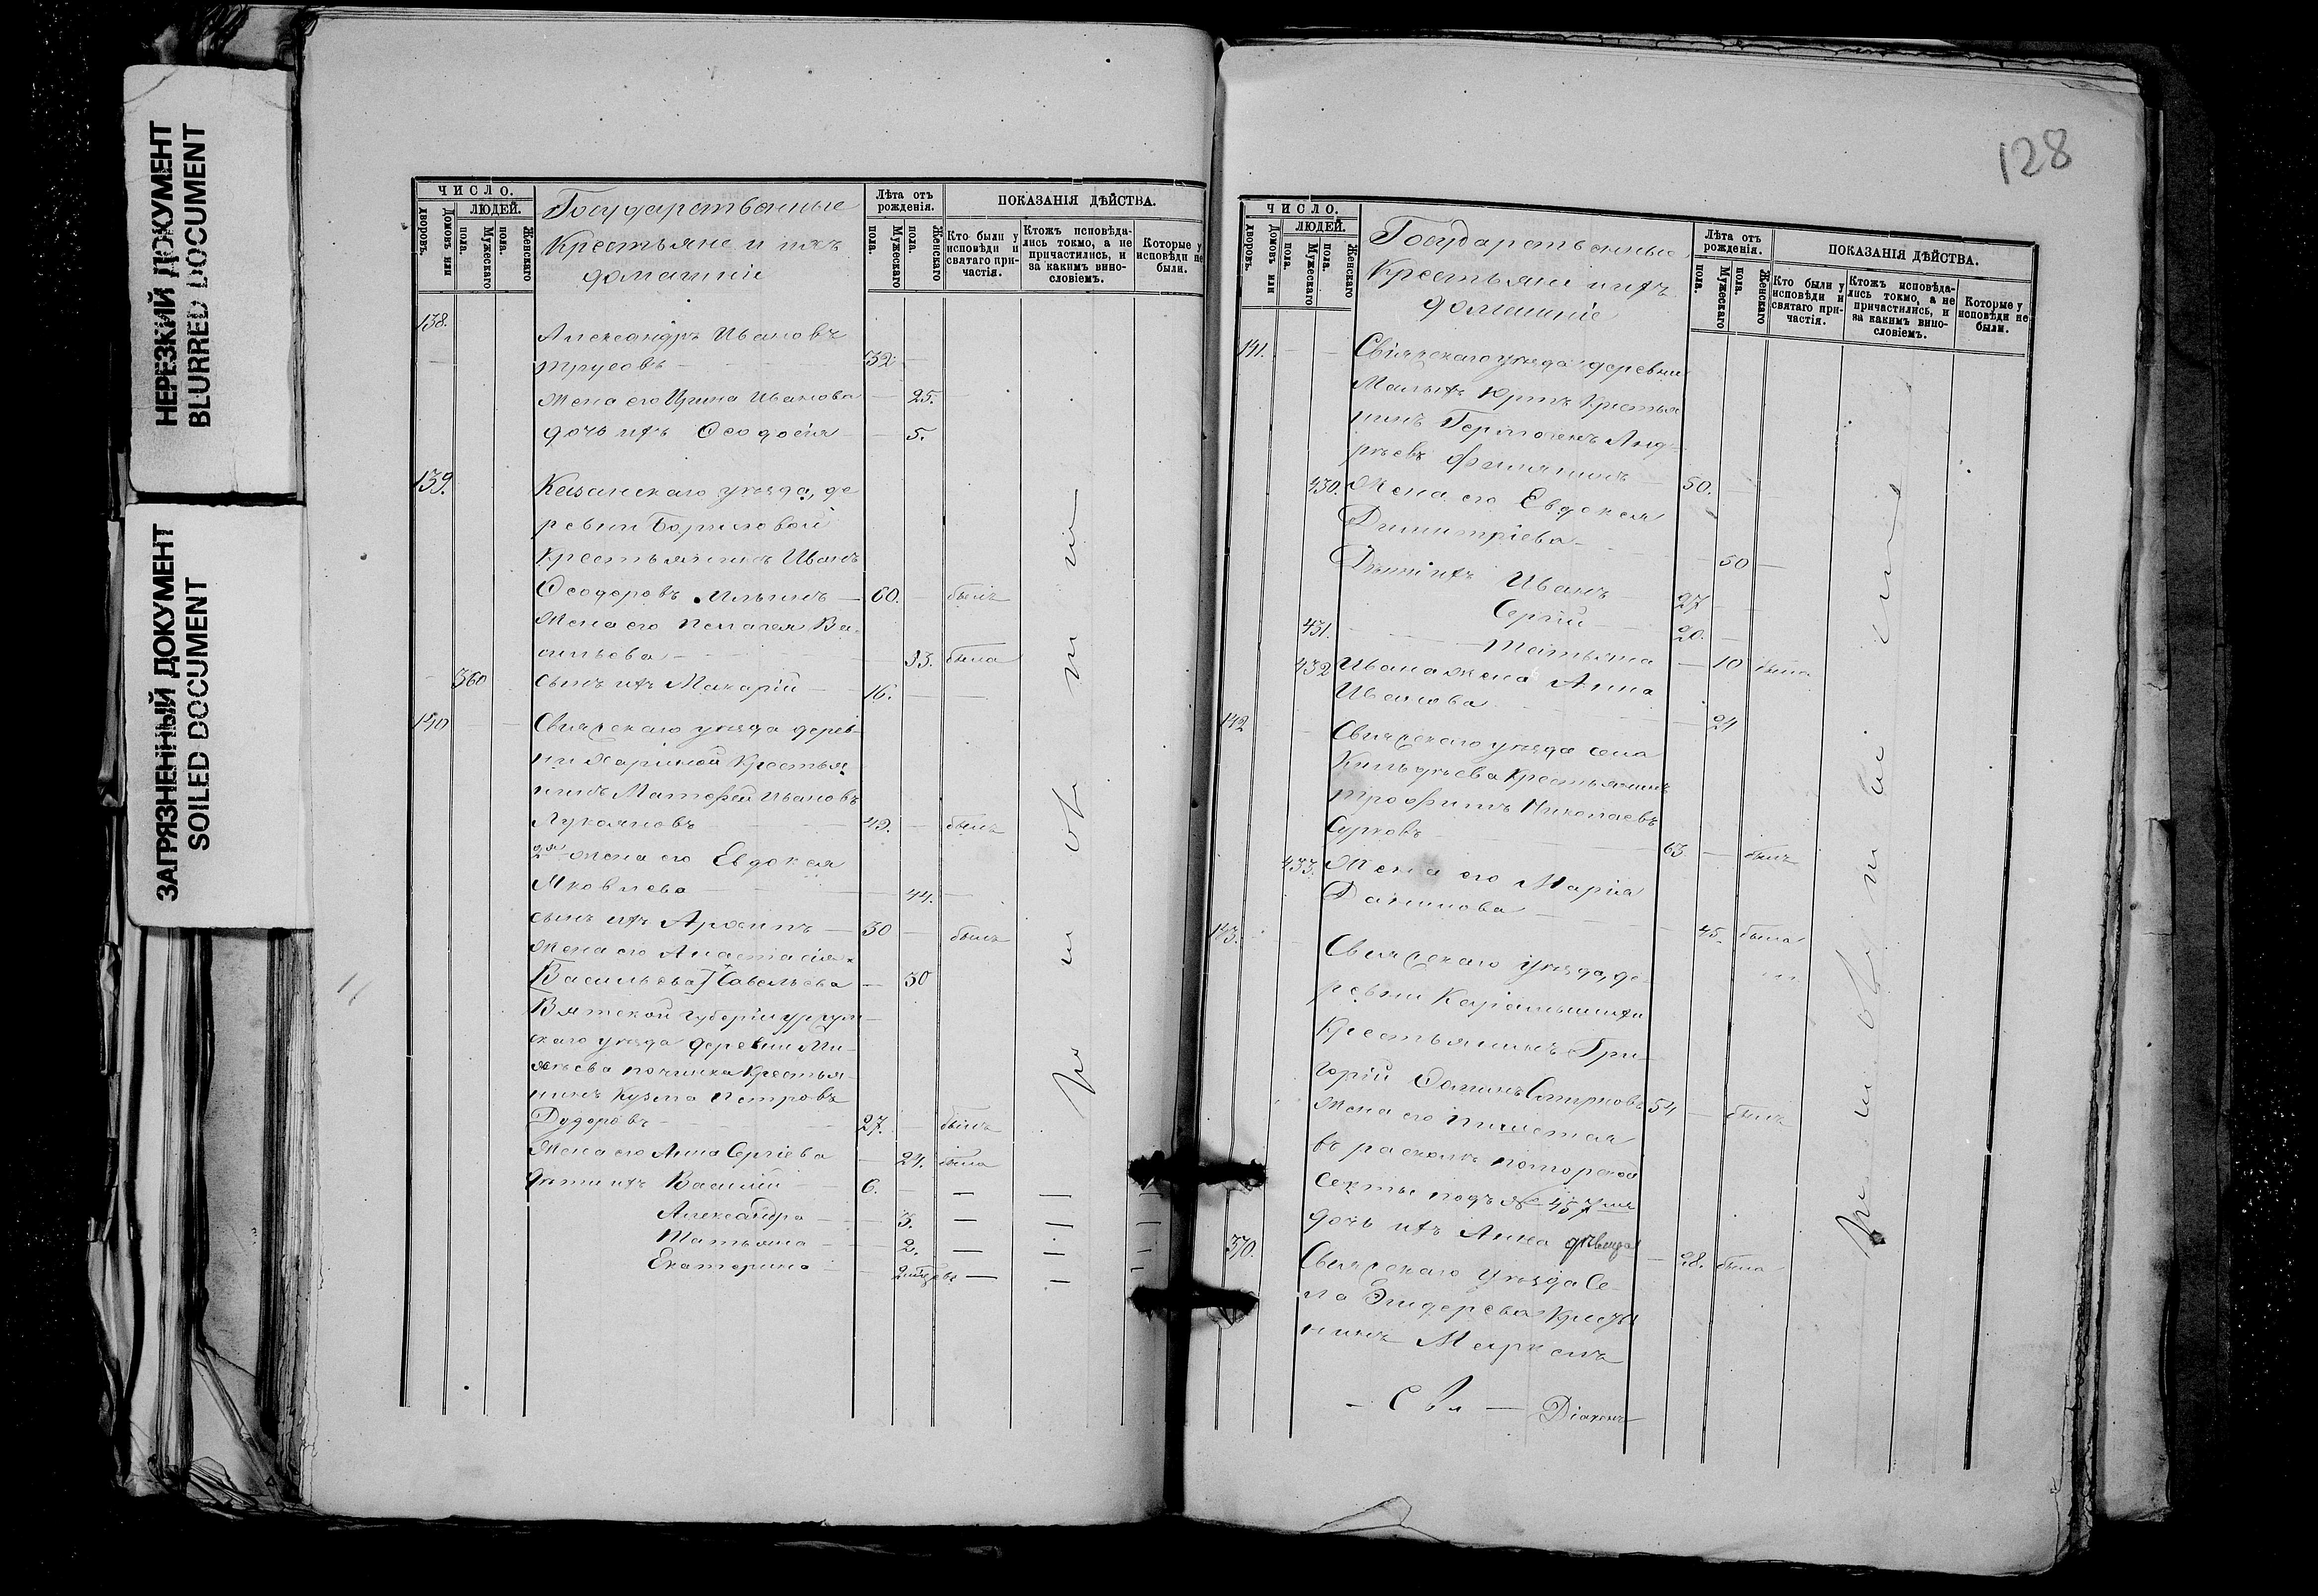 НЕРЕЗКИЙ ДОКУМЕНТ
BLURRED DOCUMENT
ЗАГРЯЗНЕННЫЙ ДОКУМЕНТ
SOILED DOCUMENT
ЧИСЛО.
ЛЮДЕЙ.
Домовъ или дворовъ.
Мужескаго пола.
Женскаго пола.
Государственные
Крестьяне и ихъ
домашніе
Лѣта отъ рожденія.
Мужескаго пола.
Женскаго пола.
ПОКАЗАНІЯ ДѢЙСТВА.
Кто были у исповѣди и святаго причастія.
Ктожъ исповѣдались токмо, а не причастились, и за какимъ винословіемъ.
Которые у исповѣди не были.
138.
Александръ Ивановъ
Трусовъ 32
Жена его Ирина Иванова 25.
дочь ихъ Ѳеодосія 5.
139. Казанскаго уѣзда, де
ревни
Крестьянинъ Иванъ
Ѳеодоровъ Ильинъ 60. былъ
Жена его Пелагея Ва-
сильева 53. была
360 сынъ ихъ Макарій 16.
140 Свіяжскаго уѣзда дерев-
ни Крестья
нинъ Матѳей Ивановъ
Лукояновъ 42. былъ
2я жена его Евдокея
Яковлева 44.
сынъ ихъ Архипъ 30 былъ
Жена его Анастасія
Васильева Савельева 30
Вятской губерніи Уржум
скаго уѣзда деревни
починка Крестья
нинъ Кузма Петровъ
Дудоровъ 27. былъ
Жена его Анна Сергіева 24. была
Дѣти ихъ Василій 6.
Александра 3.
Татьяна 2.
Екатерина
128
ЧИСЛО.
ЛЮДЕЙ.
Домовъ или дворовъ.
Мужескаго пола.
Женскаго пола.
Государственные
Крестьяне и ихъ
домашніе
Лѣта отъ рожденія.
Мужескаго пола.
Женскаго пола.
ПОКАЗАНІЯ ДѢЙСТВА.
Кто были у исповѣди и святаго причастія.
Ктожъ исповѣдались токмо, а не причастились, и за какимъ винословіемъ.
Которые у исповѣди не были.
141. Свіяжскаго уѣзда деревни
Малыхъ Крестья
нинъ Гермогенъ Анд-
рѣевъ 50.
430. Жена его Евдокея
Димитріева 50
Дѣти ихъ Иванъ 27
Сергій 20.
431. Татьяна 10 была
432 Ивана жена Анна
Иванова 24
142 Свіяжскаго уѣзда села
Кильдѣева Крестьянинъ
Трофимъ Николаевъ
Сурковъ 63 былъ
433. Жена его Марія
Данилова 45. была
143. Свіяжскаго уѣзда, де-
ревни
Крестьянинъ Гри-
горій Смирновъ 54 былъ
Жена его пишется
въ расколѣ поморской
секты подъ № 457мъ
дочь ихъ Анна дѣвица 28. была
370. Свіяжскаго уѣзда Се-
ла
нинъ
Діаконъ